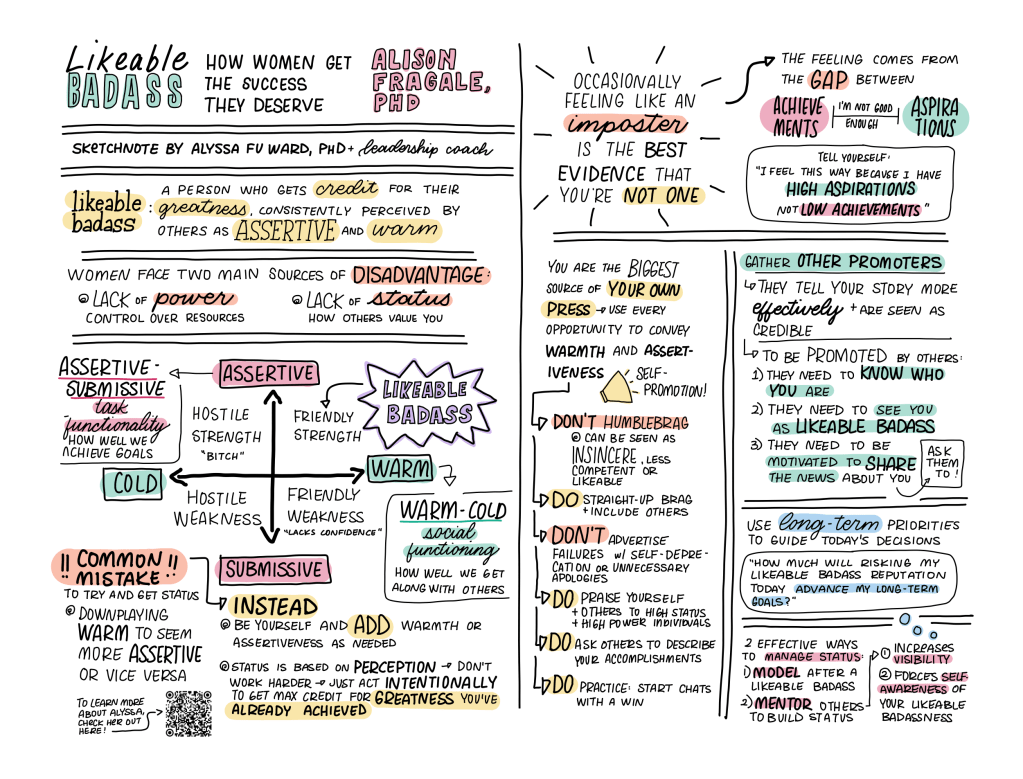 Likeable
BADASS
HOW WOMEN GET
THE SUCCESS
THEY DESERVE
ALISON
FRAGALE,
PHD
SKETCHNOTE BY ALYSSA FU WARD, PHD + leadership coach
likeable
badass
: A PERSON WHO GETS credit FOR THEIR
greatness, CONSISTENTLY PERCEIVED BY
OTHERS AS ASSERTIVE AND warm
WOMEN FACE TWO MAIN SOURCES OF DISADVANTAGE:
LACK OF power
CONTROL OVER RESOURCES
LACK OF status
HOW OTHERS VALUE YOU
ASSERTIVE-
SUBMISSIVE
task
functionality
HOW WELL WE
ACHIEVE GOALS
ASSERTIVE
HOSTILE
STRENGTH
"BITCH"
FRIENDLY
STRENGTH
LIKEABLE
BADASS
COLD
WARM
HOSTILE
WEAKNESS
FRIENDLY
WEAKNESS
"LACKS CONFIDENCE"
SUBMISSIVE
WARM-COLD
social
functioning
HOW WELL WE GET
ALONG WITH OTHERS
!! COMMON !!
MISTAKE
TO TRY AND GET STATUS
DOWNPLAYING
WARM TO SEEM
MORE ASSERTIVE
OR VICE VERSA
INSTEAD
BE YOURSELF AND ADD WARMTH OR
ASSERTIVENESS AS NEEDED
STATUS IS BASED ON PERCEPTION → DON'T
WORK HARDER → JUST ACT INTENTIONALLY
TO GET MAX CREDIT FOR GREATNESS YOU'VE
ALREADY ACHIEVED
TO LEARN MORE
ABOUT ALYSSA,
CHECK HER OUT
HERE!
OCCASIONALLY
FEELING LIKE AN
imposter
IS THE BEST
EVIDENCE THAT
YOU'RE NOT ONE
THE FEELING COMES FROM
THE GAP BETWEEN
ACHIEVE
MENTS
I'M NOT GOOD
ENOUGH
ASPIRA
TIONS
TELL YOURSELF:
"I FEEL THIS WAY BECAUSE I HAVE
HIGH ASPIRATIONS
NOT LOW ACHIEVEMENTS"
YOU ARE THE BIGGEST
SOURCE OF YOUR OWN
PRESS → USE EVERY
OPPORTUNITY TO CONVEY
WARMTH AND ASSERT-
IVENESS
SELF-
PROMOTION!
DON'T HUMBLEBRAG
CAN BE SEEN AS
INSINCERE, LESS
COMPETENT OR
LIKEABLE
DO STRAIGHT-UP BRAG
+ INCLUDE OTHERS
DON'T ADVERTISE
FAILURES w/ SELF-DEPRE-
CATION OR UNNECESSARY
APOLOGIES
DO PRAISE YOURSELF
+ OTHERS TO HIGH STATUS
+ HIGH POWER INDIVIDUALS
DO ASK OTHERS TO DESCRIBE
YOUR ACCOMPLISHMENTS
DO PRACTICE: START CHATS
WITH A WIN
GATHER OTHER PROMOTERS
THEY TELL YOUR STORY MORE
effectively + ARE SEEN AS
CREDIBLE
TO BE PROMOTED BY OTHERS:
1) THEY NEED TO KNOW WHO
YOU ARE
2) THEY NEED TO SEE YOU
AS LIKEABLE BADASS
3) THEY NEED TO BE
MOTIVATED TO SHARE
THE NEWS ABOUT YOU
ASK
THEM
TO!
USE long-term PRIORITIES
TO GUIDE TODAY'S DECISIONS
"HOW MUCH WILL RISKING MY
LIKEABLE BADASS REPUTATION
TODAY ADVANCE MY LONG-TERM
GOALS?"
2 EFFECTIVE WAYS
TO MANAGE STATUS:
1) MODEL AFTER A
LIKEABLE BADASS
2) MENTOR OTHERS
TO BUILD STATUS
① INCREASES
VISIBILITY
② FORCES SELF
AWARENESS OF
YOUR LIKEABLE
BADASSNESS